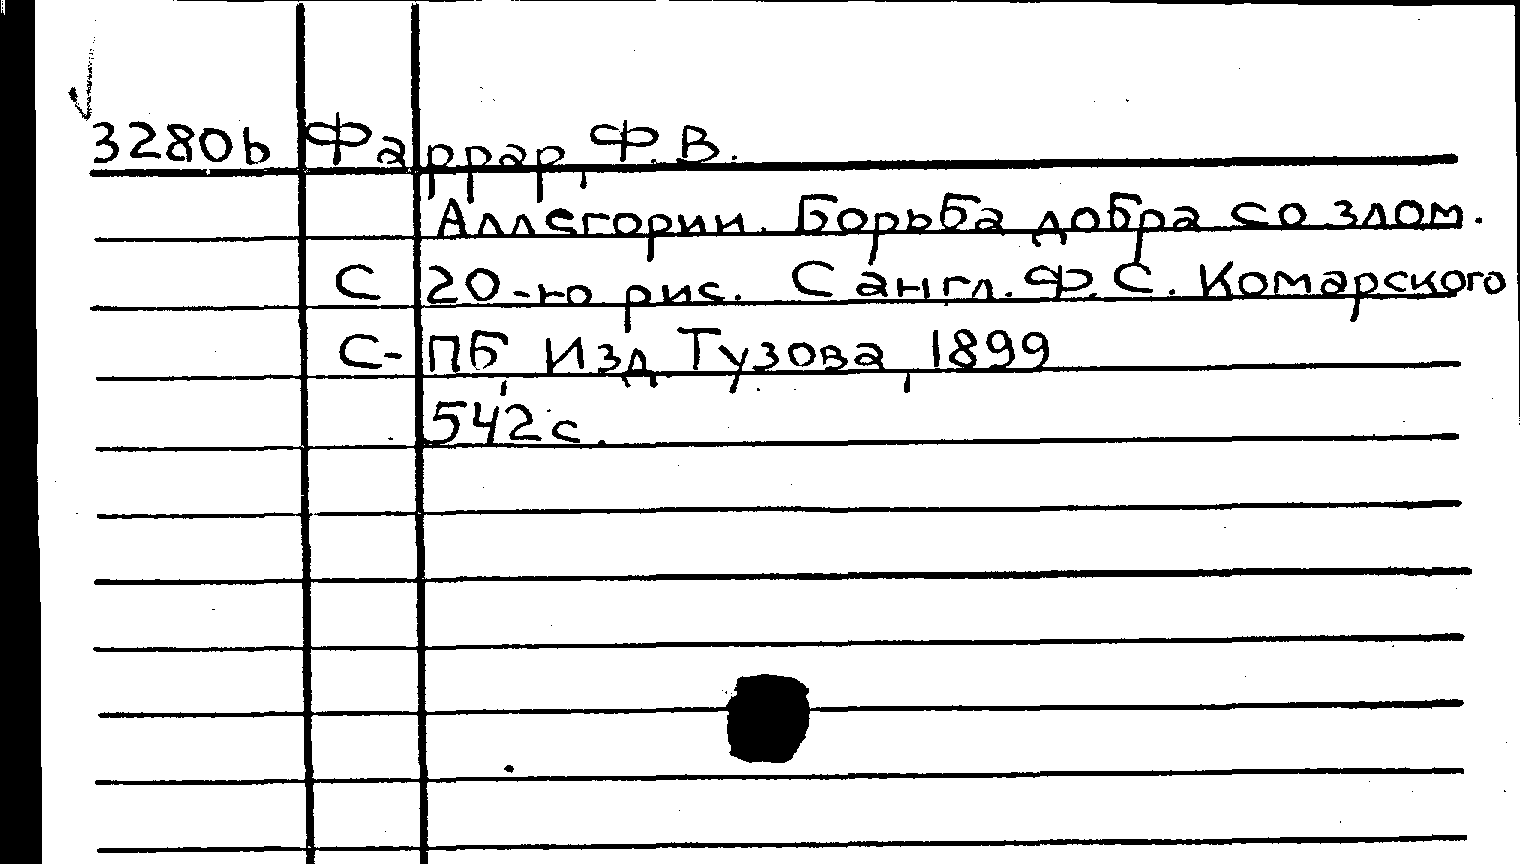 3280b Фаррар, Ф. В.
Аллегории. Борьба добра со злом.
С 20-ю рис. С англ. Ф. С. Комарского
С-ПБ, Изд Тузова, 1899
542 с.